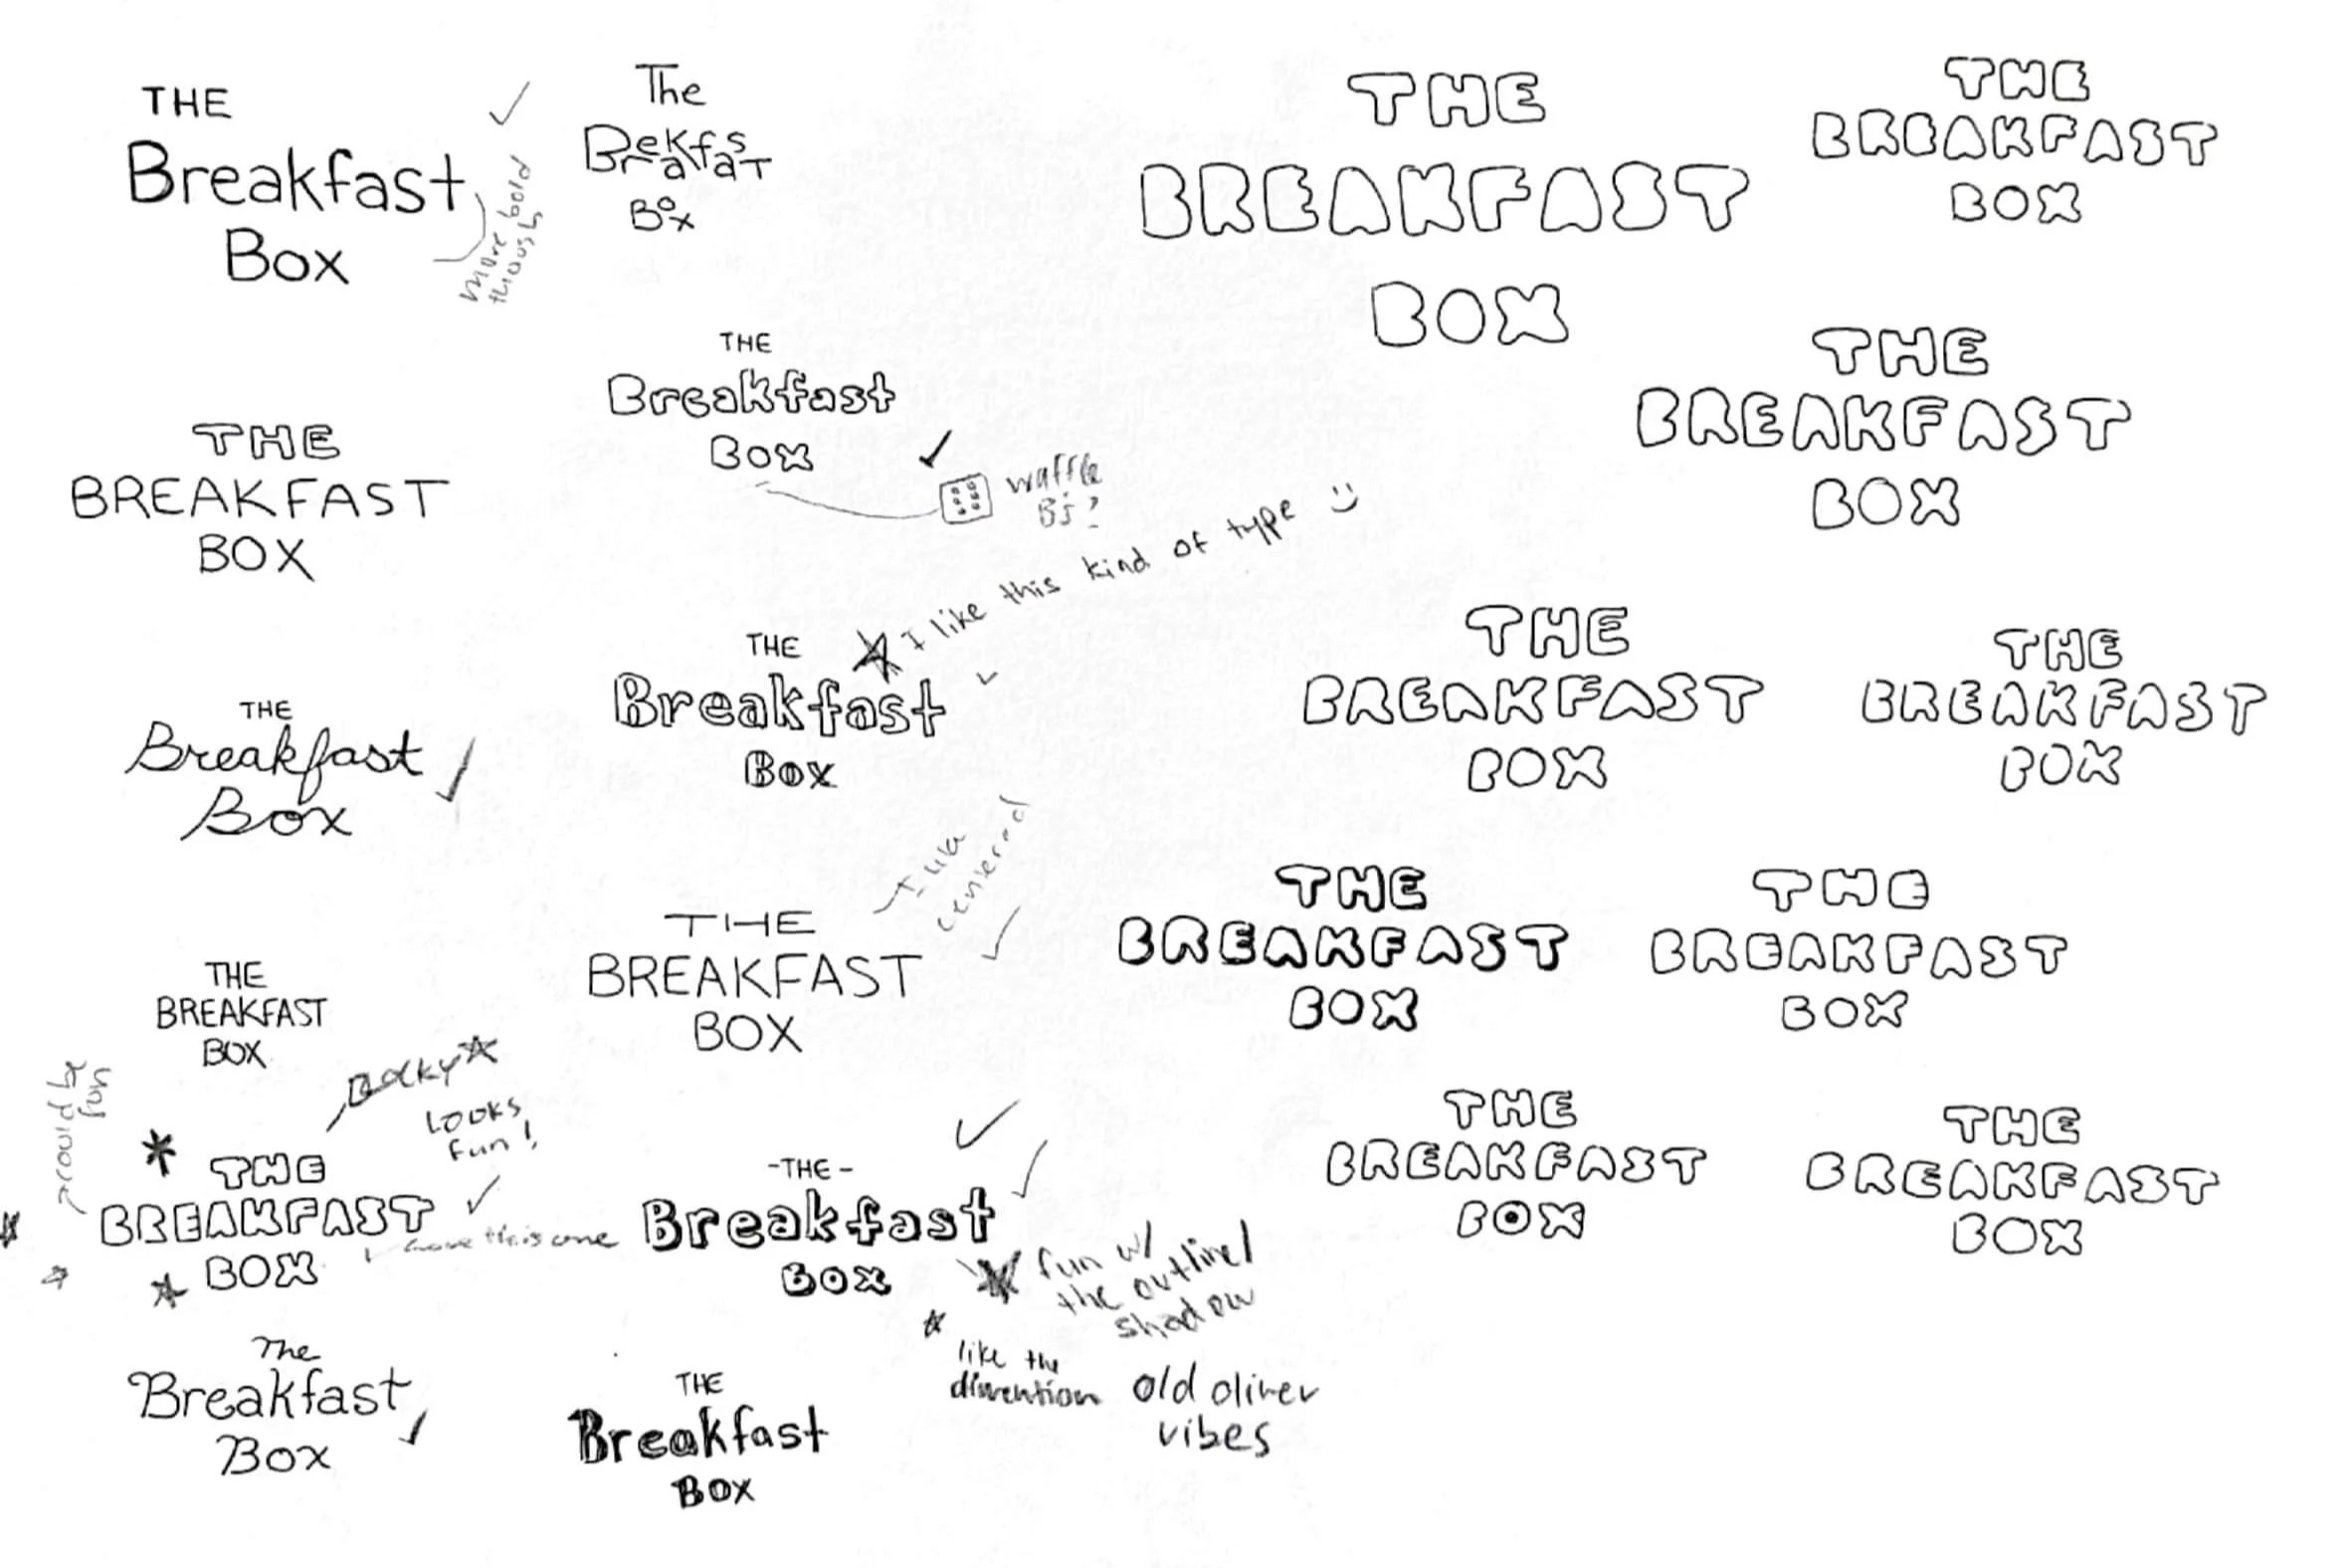 THE
Breakfast
Box
more bold
The
Breakfast
Box
THE
BREAKFAST
BOX
THE
BREAKFAST
BOX
THE
Breakfast
Box
waffle
B's?
THE
BREAKFAST
BOX
THE
BREAKFAST
BOX
I like this kind of type :)
THE
Breakfast
Box
THE
Breakfast
Box
THE
BREAKFAST
BOX
THE
BREAKFAST
BOX
I like
centered
THE
BREAKFAST
BOX
THE
BREAKFAST
BOX
THE
BREAKFAST
BOX
THE
BREAKFAST
BOX
could be
fun
Looks
fun!
THE
BREAKFAST
BOX
this one
-THE-
Breakfast
Box
fun w/
the outline
shadow
like the
dimention
old oliver
vibes
THE
BREAKFAST
BOX
THE
BREAKFAST
BOX
The
Breakfast
Box
THE
Breakfast
Box